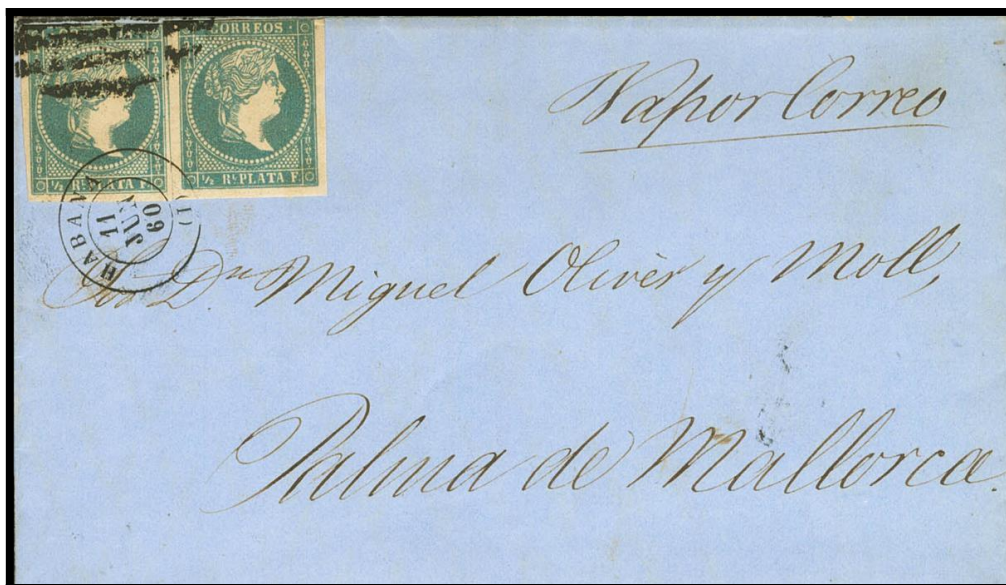 CORREOS
½ Rl. PLATA F.
½ Rl. PLATA F.
HABANA
11
JUN
60
(1)
Vapor Correo
Sor Dn Miguel Olivér y Moll,
Palma de Mallorca.